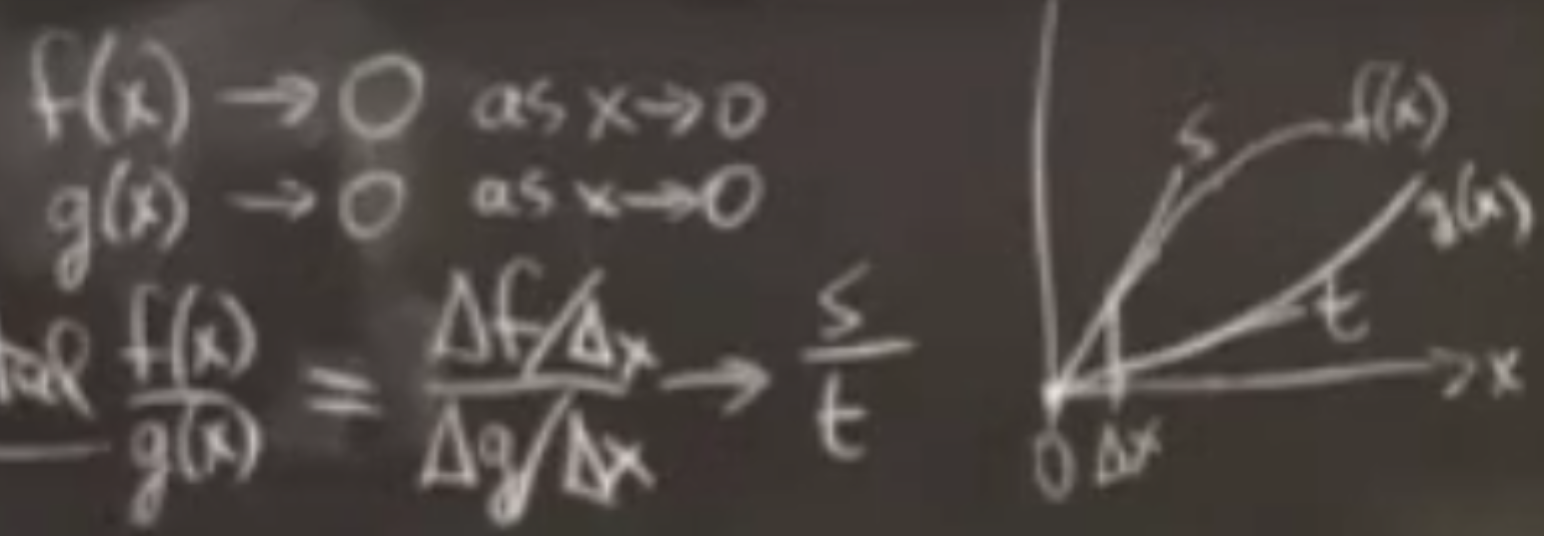 f(x) → 0 as x→0
g(x) → 0 as x→0
f(x)/g(x) = (Δf/Δx)/(Δg/Δx) → s/t
s
f(x)
g(x)
t
x
0 Δx